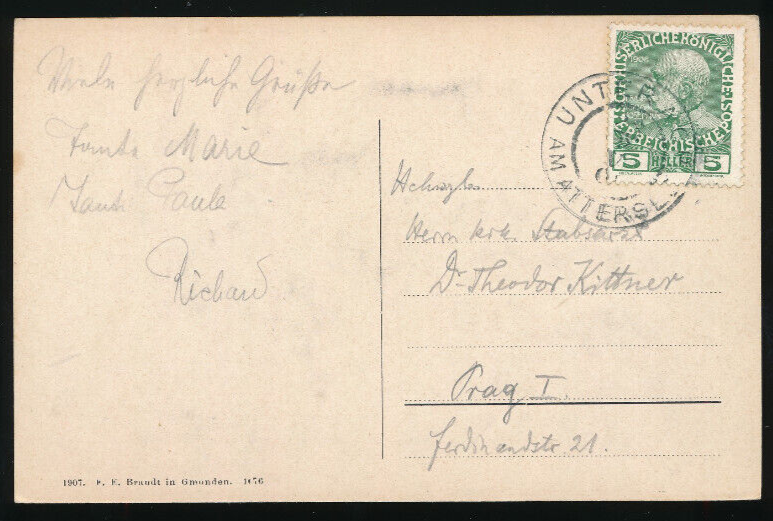 Viele herzliche Grüße
Tante Marie
Tante Paula
Richard
KAISERLICHE KÖNIGLICHE
1908
ÖSTERREICHISCHE
5 HELLER 5
UNT
AM ATTERSEE
Herrn
Stabsarzt
Dr Theodor Kittner
Prag I.
Ferdinandstr. 21.
1907. F. E. Brandt in Gmunden. 1076